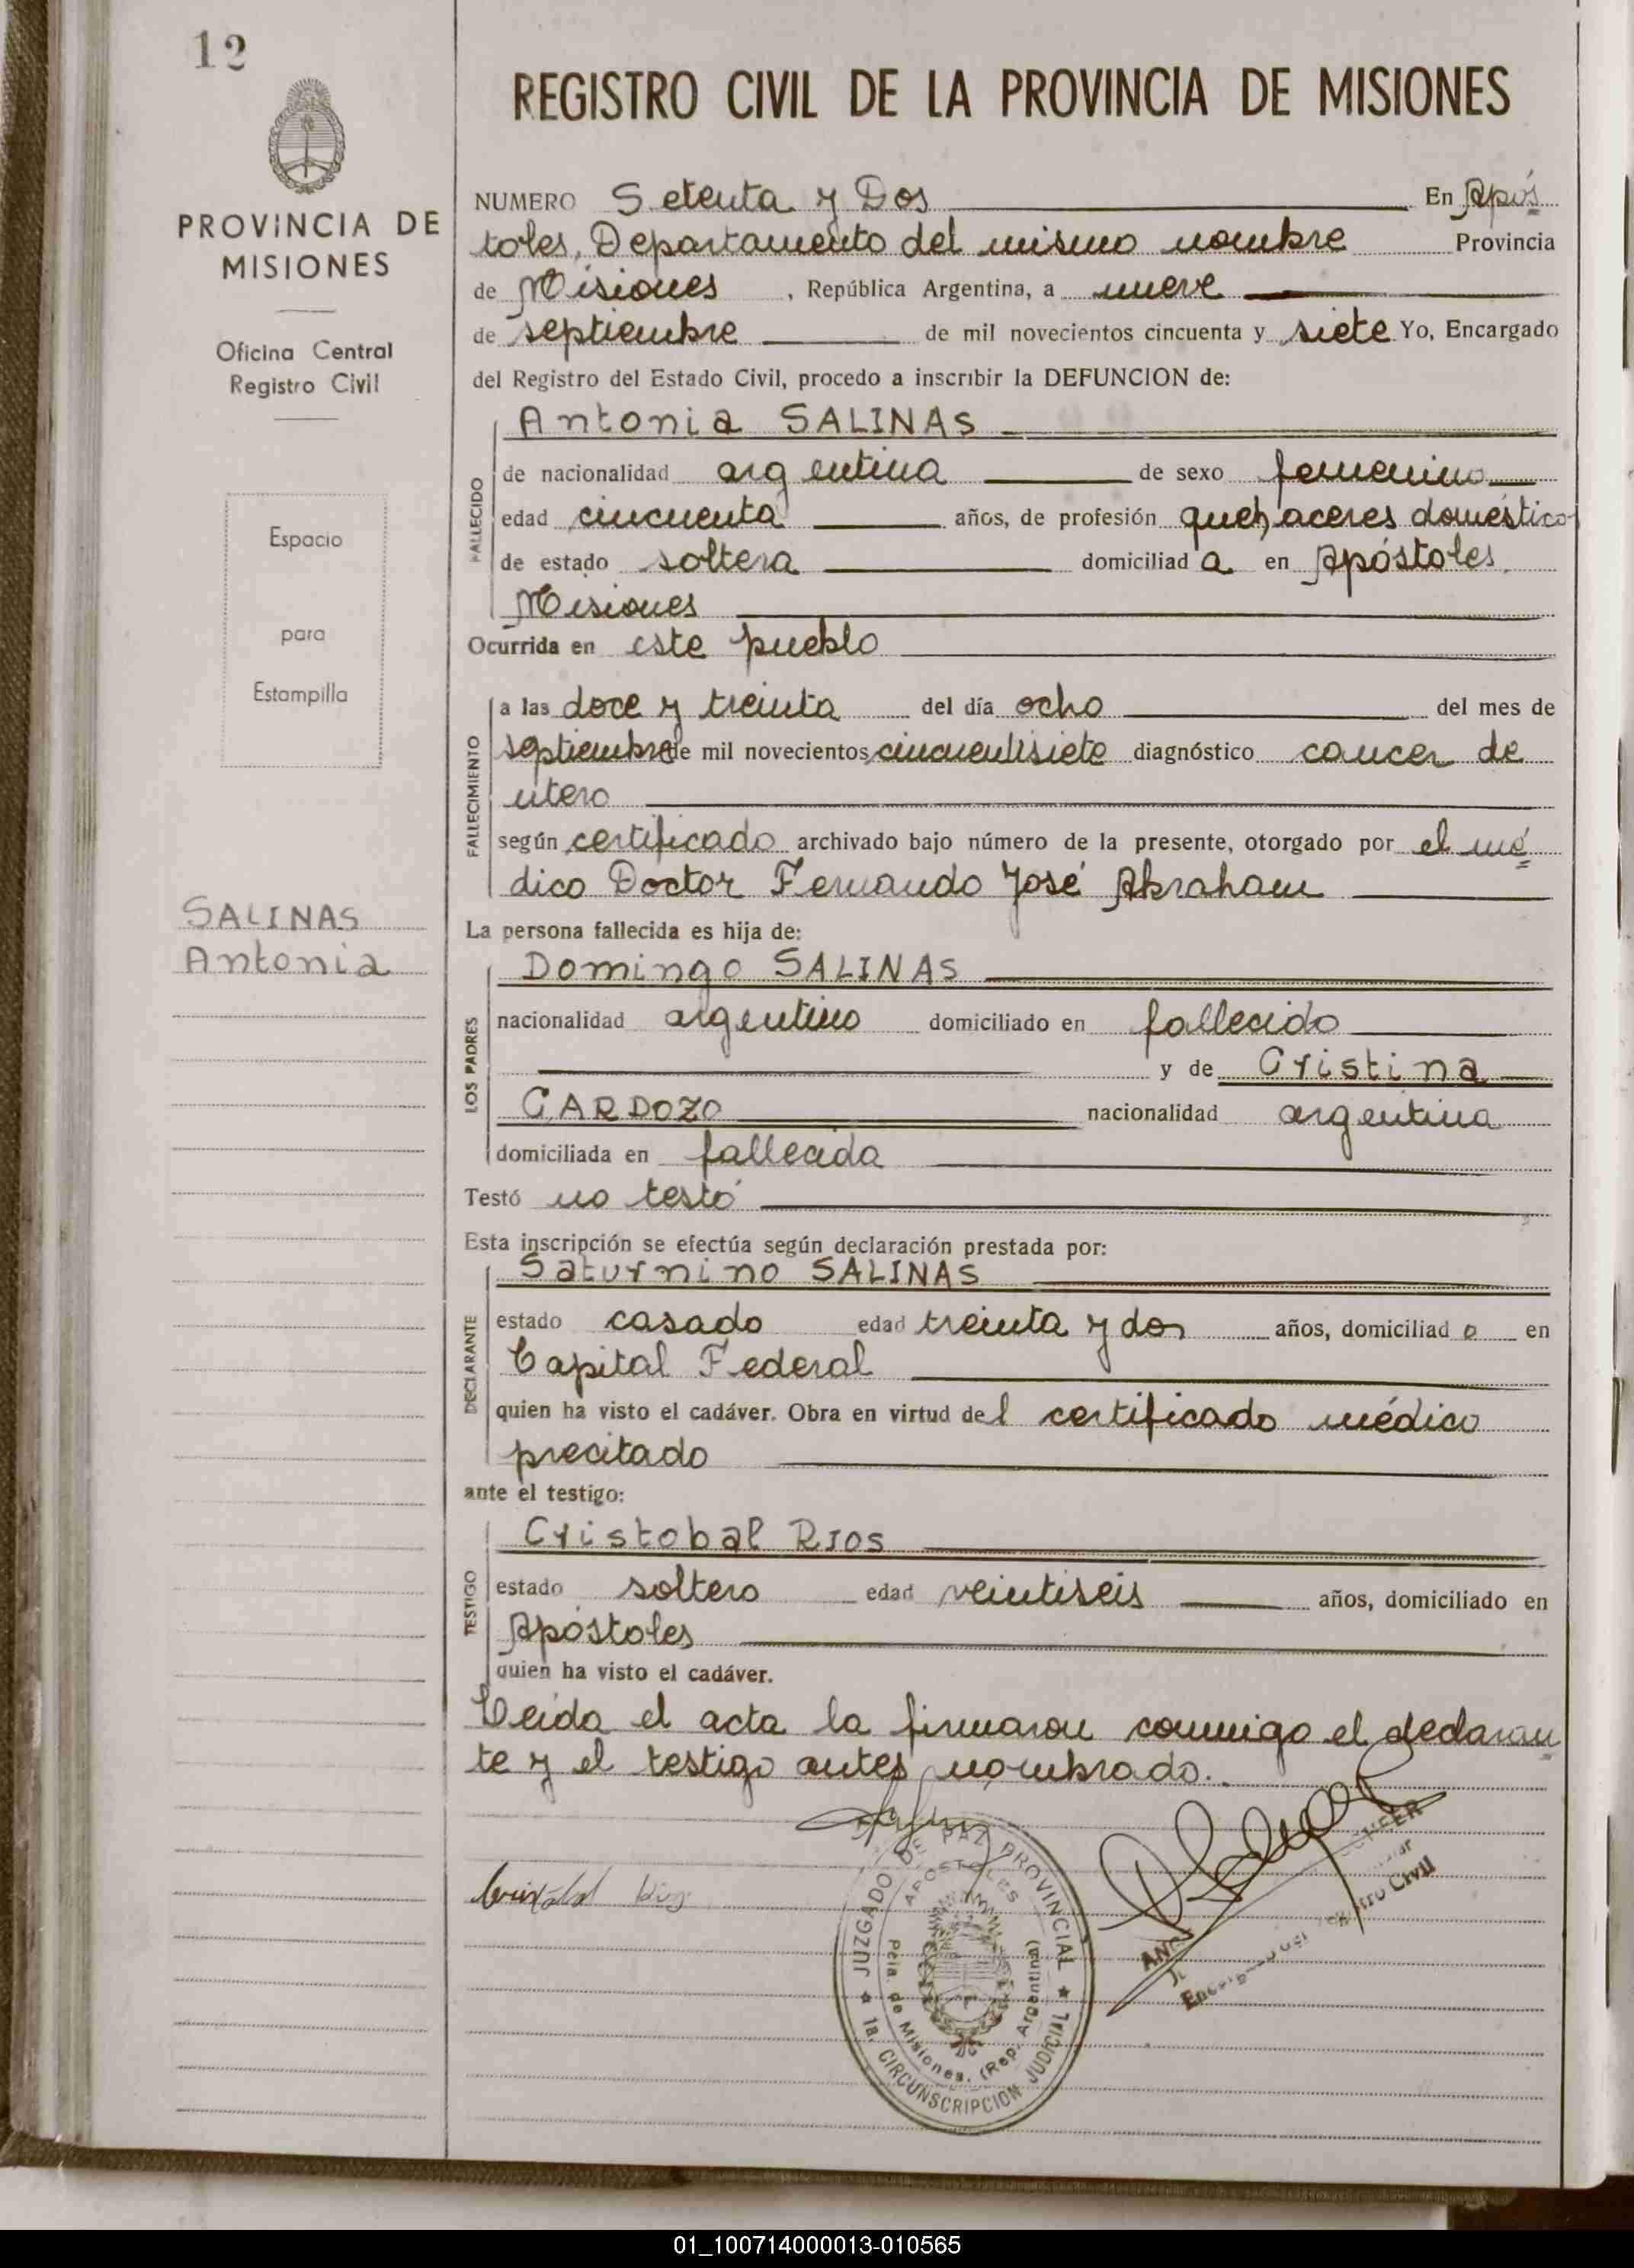 12
PROVINCIA DE
MISIONES
Oficina Central
Registro Civil
Espacio
para
Estampilla
SALINAS
Antonia
REGISTRO CIVIL DE LA PROVINCIA DE MISIONES
NUMERO Setenta y Dos En Após
toles, Departamento del mismo nombre Provincia
de Misiones, República Argentina, a nueve
de septiembre de mil novecientos cincuenta y siete Yo, Encargado
del Registro del Estado Civil, procedo a inscribir la DEFUNCION de:
FALLECIDO
Antonia SALINAS
de nacionalidad argentina de sexo femenino
edad cincuenta años, de profesión quehaceres domésticos
de estado soltera domiciliada en Apóstoles,
Misiones
Ocurrida en este pueblo
FALLECIMIENTO
a las doce y treinta del día ocho del mes de
septiembre de mil novecientos cincuentisiete diagnóstico cancer de
utero
según certificado archivado bajo número de la presente, otorgado por el mé
dico Doctor Fernando José Abraham
La persona fallecida es hija de:
LOS PADRES
Domingo SALINAS
nacionalidad argentino domiciliado en fallecido
y de Cristina
CARDOZO nacionalidad argentina
domiciliada en fallecida
Testó no testó
Esta inscripción se efectúa según declaración prestada por:
DECLARANTE
Saturnino SALINAS
estado casado edad treinta y dos años, domiciliado en
Capital Federal
quien ha visto el cadáver. Obra en virtud del certificado médico
precitado
ante el testigo:
TESTIGO
Cristobal RIOS
estado soltero edad veintiseis años, domiciliado en
Apóstoles
quien ha visto el cadáver.
Leída el acta la firmaron conmigo el declaran
te y el testigo antes nombrado.
Cristobal Rios
JUZGADO DE PAZ PROVINCIAL
APOSTOLES
Pcia. de Misiones. (Rep. Argentina)
1a. CIRCUNSCRIPCION JUDICIAL
Encargado del Registro Civil
01_100714000013-010565